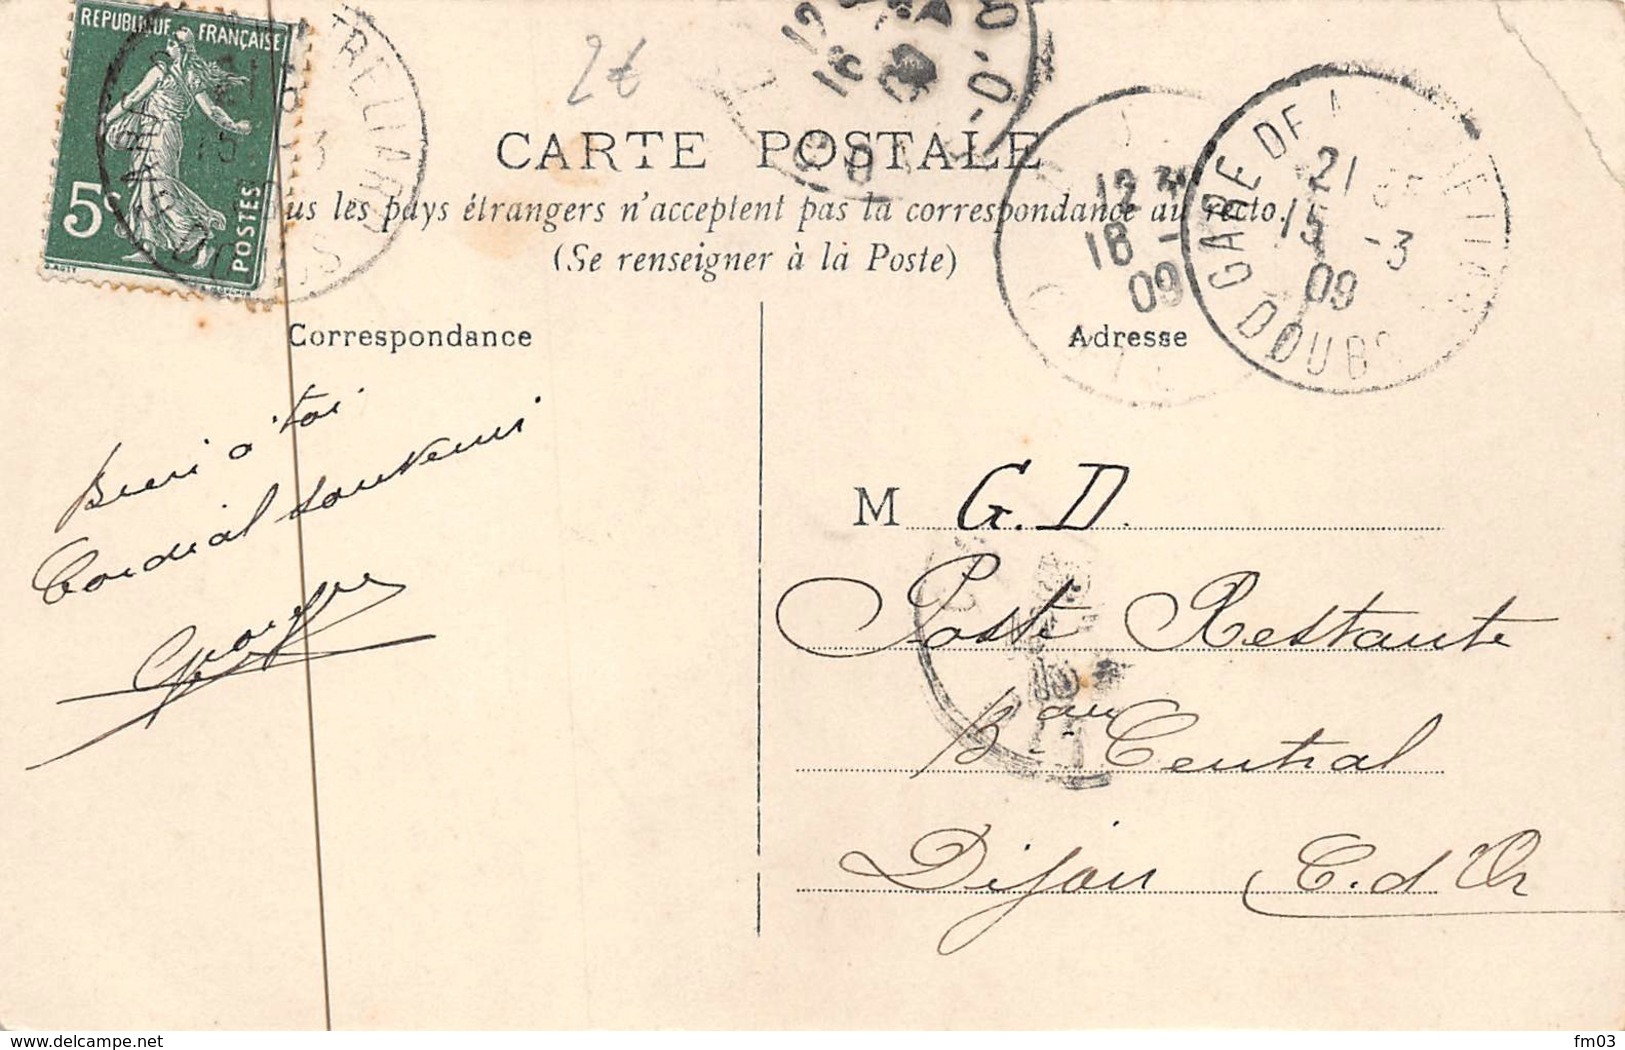 REPUBLIQUE FRANÇAISE
5c
POSTES
2€
CARTE POSTALE
us les pays étrangers n'acceptent pas la correspondance au recto.
(Se renseigner à la Poste)
12
18 -
09
GARE DE
21
15 -3
09
DOUBS
Correspondance
Adresse
Bien à toi
Cordial souvenir
M G. D.
Poste Restante
Bau Central
Dijon C. d'Or
www.delcampe.net
fm03